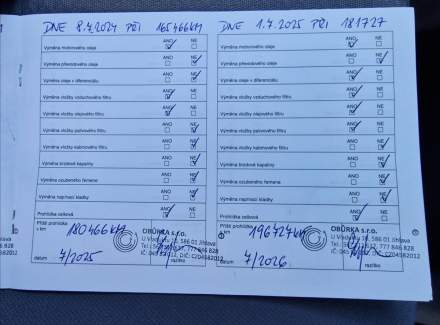 DNE 8.7.2024 PŘI 165466 KM
ANO NE
Výměna motorového oleje
ANO NE
Výměna převodového oleje
ANO NE
Výměna oleje v diferenciálu
ANO NE
Výměna vložky vzduchového filtru
ANO NE
Výměna vložky olejového filtru
ANO NE
Výměna vložky palivového filtru
ANO NE
Výměna vložky kabinového filtru
ANO NE
Výměna brzdové kapaliny
ANO NE
Výměna ozubeného řemene
ANO NE
Výměna napínací kladky
ANO NE
Prohlídka celková
Příští prohlídka
v km
180466 KM
OBŮRKA s.r.o.
586 01 Jihlava
777 846 828
datum 7/2025 razítko
DNE 1.7.2025 PŘI 181727
ANO NE
Výměna motorového oleje
ANO NE
Výměna převodového oleje
ANO NE
Výměna oleje v diferenciálu
ANO NE
Výměna vložky vzduchového filtru
ANO NE
Výměna vložky olejového filtru
ANO NE
Výměna vložky palivového filtru
ANO NE
Výměna vložky kabinového filtru
ANO NE
Výměna brzdové kapaliny
ANO NE
Výměna ozubeného řemene
ANO NE
Výměna napínací kladky
ANO NE
Prohlídka celková
Příští prohlídka
v km
196727 KM
OBŮRKA s.r.o.
586 01 Jihlava
777 846 828
datum 7/2026 razítko